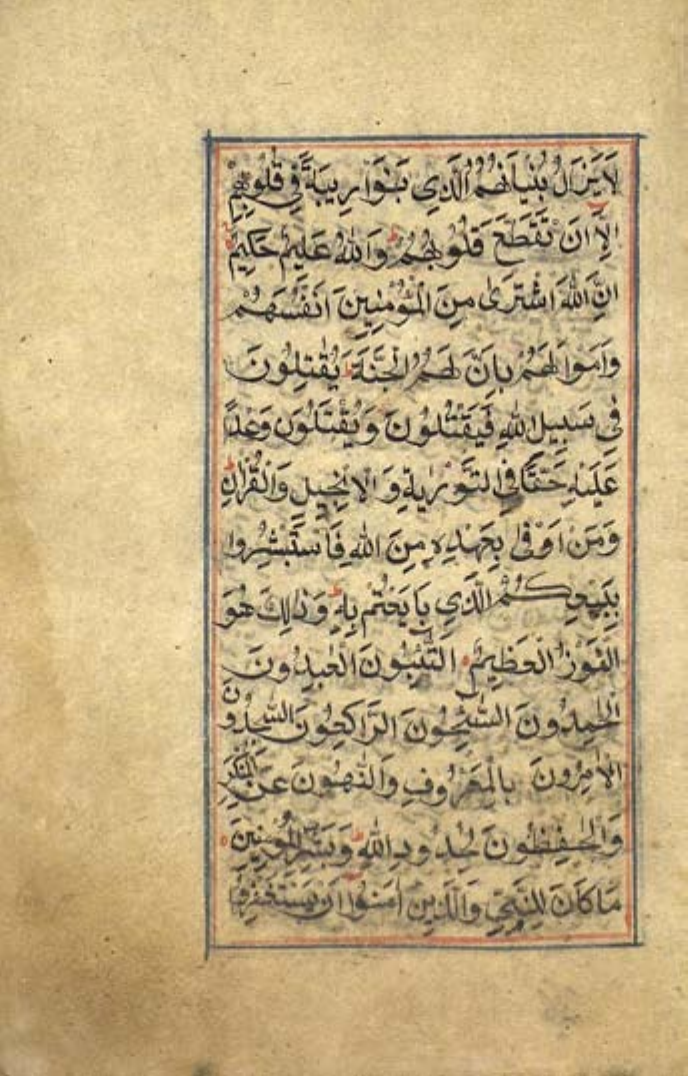 لَايَزَالُ بُنْيَانُهُمُ الَّذِى بَنَوْا رِيبَةً فِى قُلُوبِهِمْ
اِلَّا اَنْ تَقَطَّعَ قُلُوبُهُمْ وَاللهُ عَلِيمٌ حَكِيمٌ
اِنَّ اللهَ اشْتَرَىٰ مِنَ الْمُؤْمِنِينَ اَنْفُسَهُمْ
وَاَمْوَالَهُمْ بِاَنَّ لَهُمُ الْجَنَّةَ يُقَٰتِلُونَ
فِى سَبِيلِ اللهِ فَيَقْتُلُونَ وَيُقْتَلُونَ وَعْدًا
عَلَيْهِ حَقًّا فِى التَّوْرٰيةِ وَالْاِنْجِيلِ وَالْقُرْاٰنِ
وَمَنْ اَوْفٰى بِعَهْدِهِ مِنَ اللهِ فَاسْتَبْشِرُوا
بِبَيْعِكُمُ الَّذِى بَايَعْتُمْ بِهِ وَذٰلِكَ هُوَ
الْفَوْزُ الْعَظِيمُ التَّٰئِبُونَ الْعٰبِدُونَ
الْحٰمِدُونَ السّٰٓئِحُونَ الرَّاكِعُونَ السّٰجِدُونَ
الْاٰمِرُونَ بِالْمَعْرُوفِ وَالنَّاهُونَ عَنِ الْمُنْكَرِ
وَالْحٰفِظُونَ لِحُدُودِ اللهِ وَبَشِّرِ الْمُؤْمِنِينَ
مَا كَانَ لِلنَّبِىِّ وَالَّذِينَ اٰمَنُوا اَنْ يَسْتَغْفِرُوا